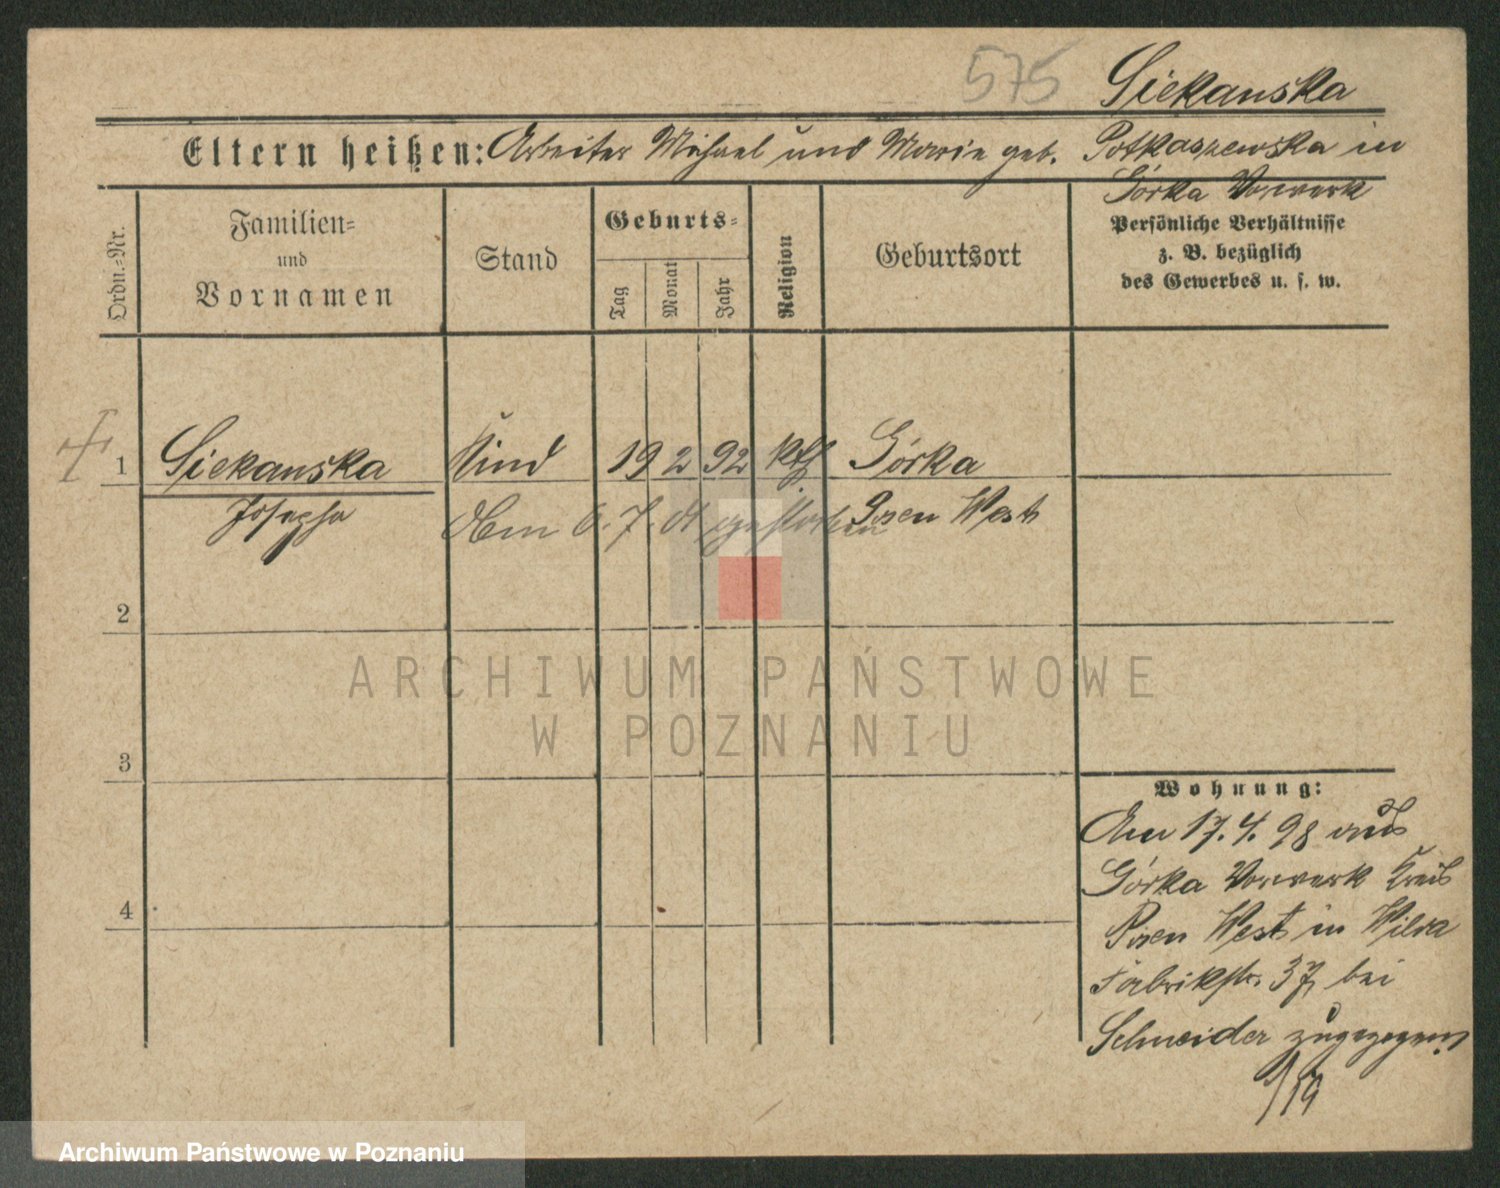 575 Siekanska
Eltern heißen: Arbeiter Michael und Marie geb. Potkaszewska in
Górka Vorwerk
Ordn.-Nr.
Familien-
und
Vornamen
Stand
Geburts-
Tag
Monat
Jahr
Religion
Geburtsort
Persönliche Verhältnisse
z. B. bezüglich
des Gewerbes u. s. w.
1 Siekanska Kind 19 2 92 kth Górka
Josepha Am 6. 7. gestorben Posen West
2
3
4
Wohnung:
Am 17. 4. 98 aus
Górka Vorwerk Kreis
Posen West in Wilda
Fabrikstr. 37, bei
Schneider zugezogen
/19
ARCHIWUM PAŃSTWOWE
W POZNANIU
Archiwum Państwowe w Poznaniu